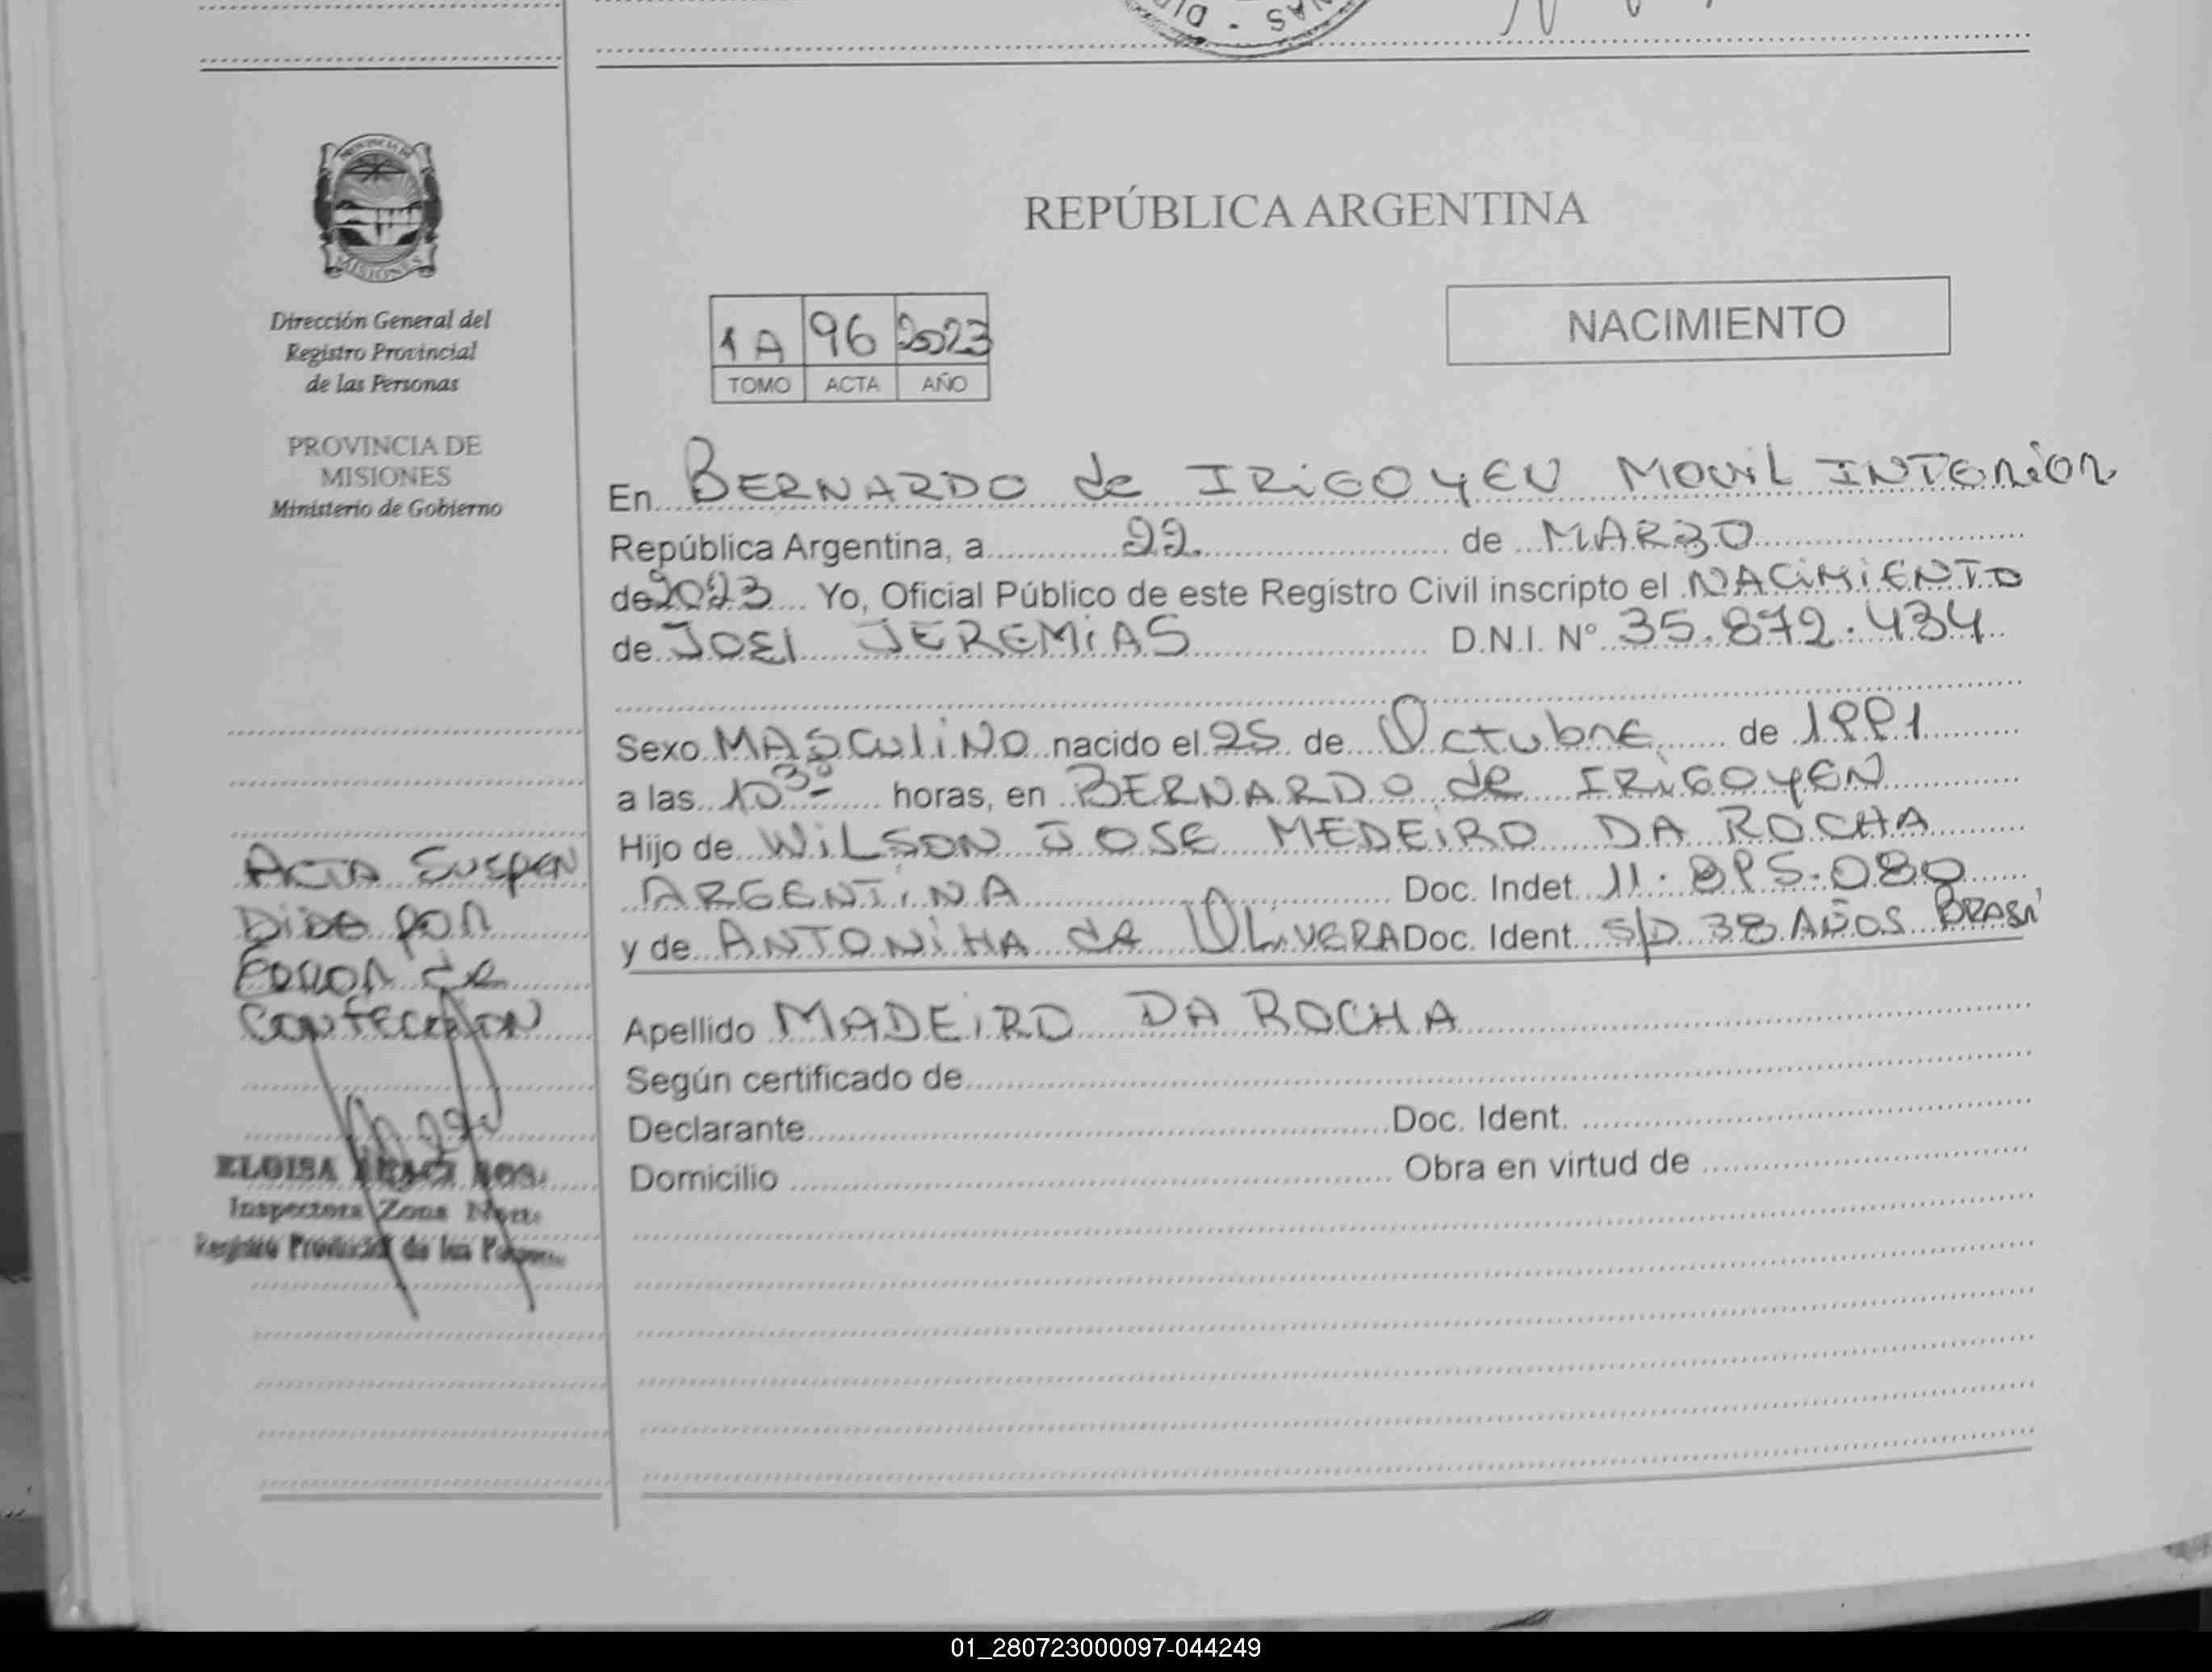 REPÚBLICA ARGENTINA
PROVINCIA DE
MISIONES
Dirección General del
Registro Provincial
de las Personas
PROVINCIA DE
MISIONES
Ministerio de Gobierno
1A 96 2023
TOMO ACTA AÑO
NACIMIENTO
En BERNARDO de IRIGOYEN MOVIL INTERIOR
República Argentina, a 22 de MARZO
de 2023 Yo, Oficial Público de este Registro Civil inscripto el NACIMIENTO
de JOEl JEREMIAS D.N.I. N° 35.872.434
Sexo MASCULINO nacido el 25 de Octubre de 1991
a las 10 30 horas, en BERNARDO de IRIGOYEN
Hijo de WILSON JOSE MEDEIRO DA ROCHA
ARGENTINA Doc. Indet. 11.895.080
y de ANTONIHA de OLIVERA Doc. Ident. S/D 38 AÑOS BRASil
Apellido MADEIRO DA ROCHA
Según certificado de
Declarante Doc. Ident.
Domicilio Obra en virtud de
ACTA SUSPEN
DIDA POR
ERROR de
CONFECCION
ELOISA
Inspectora Zona Norte
Registro Provincial de las
01_280723000097-044249